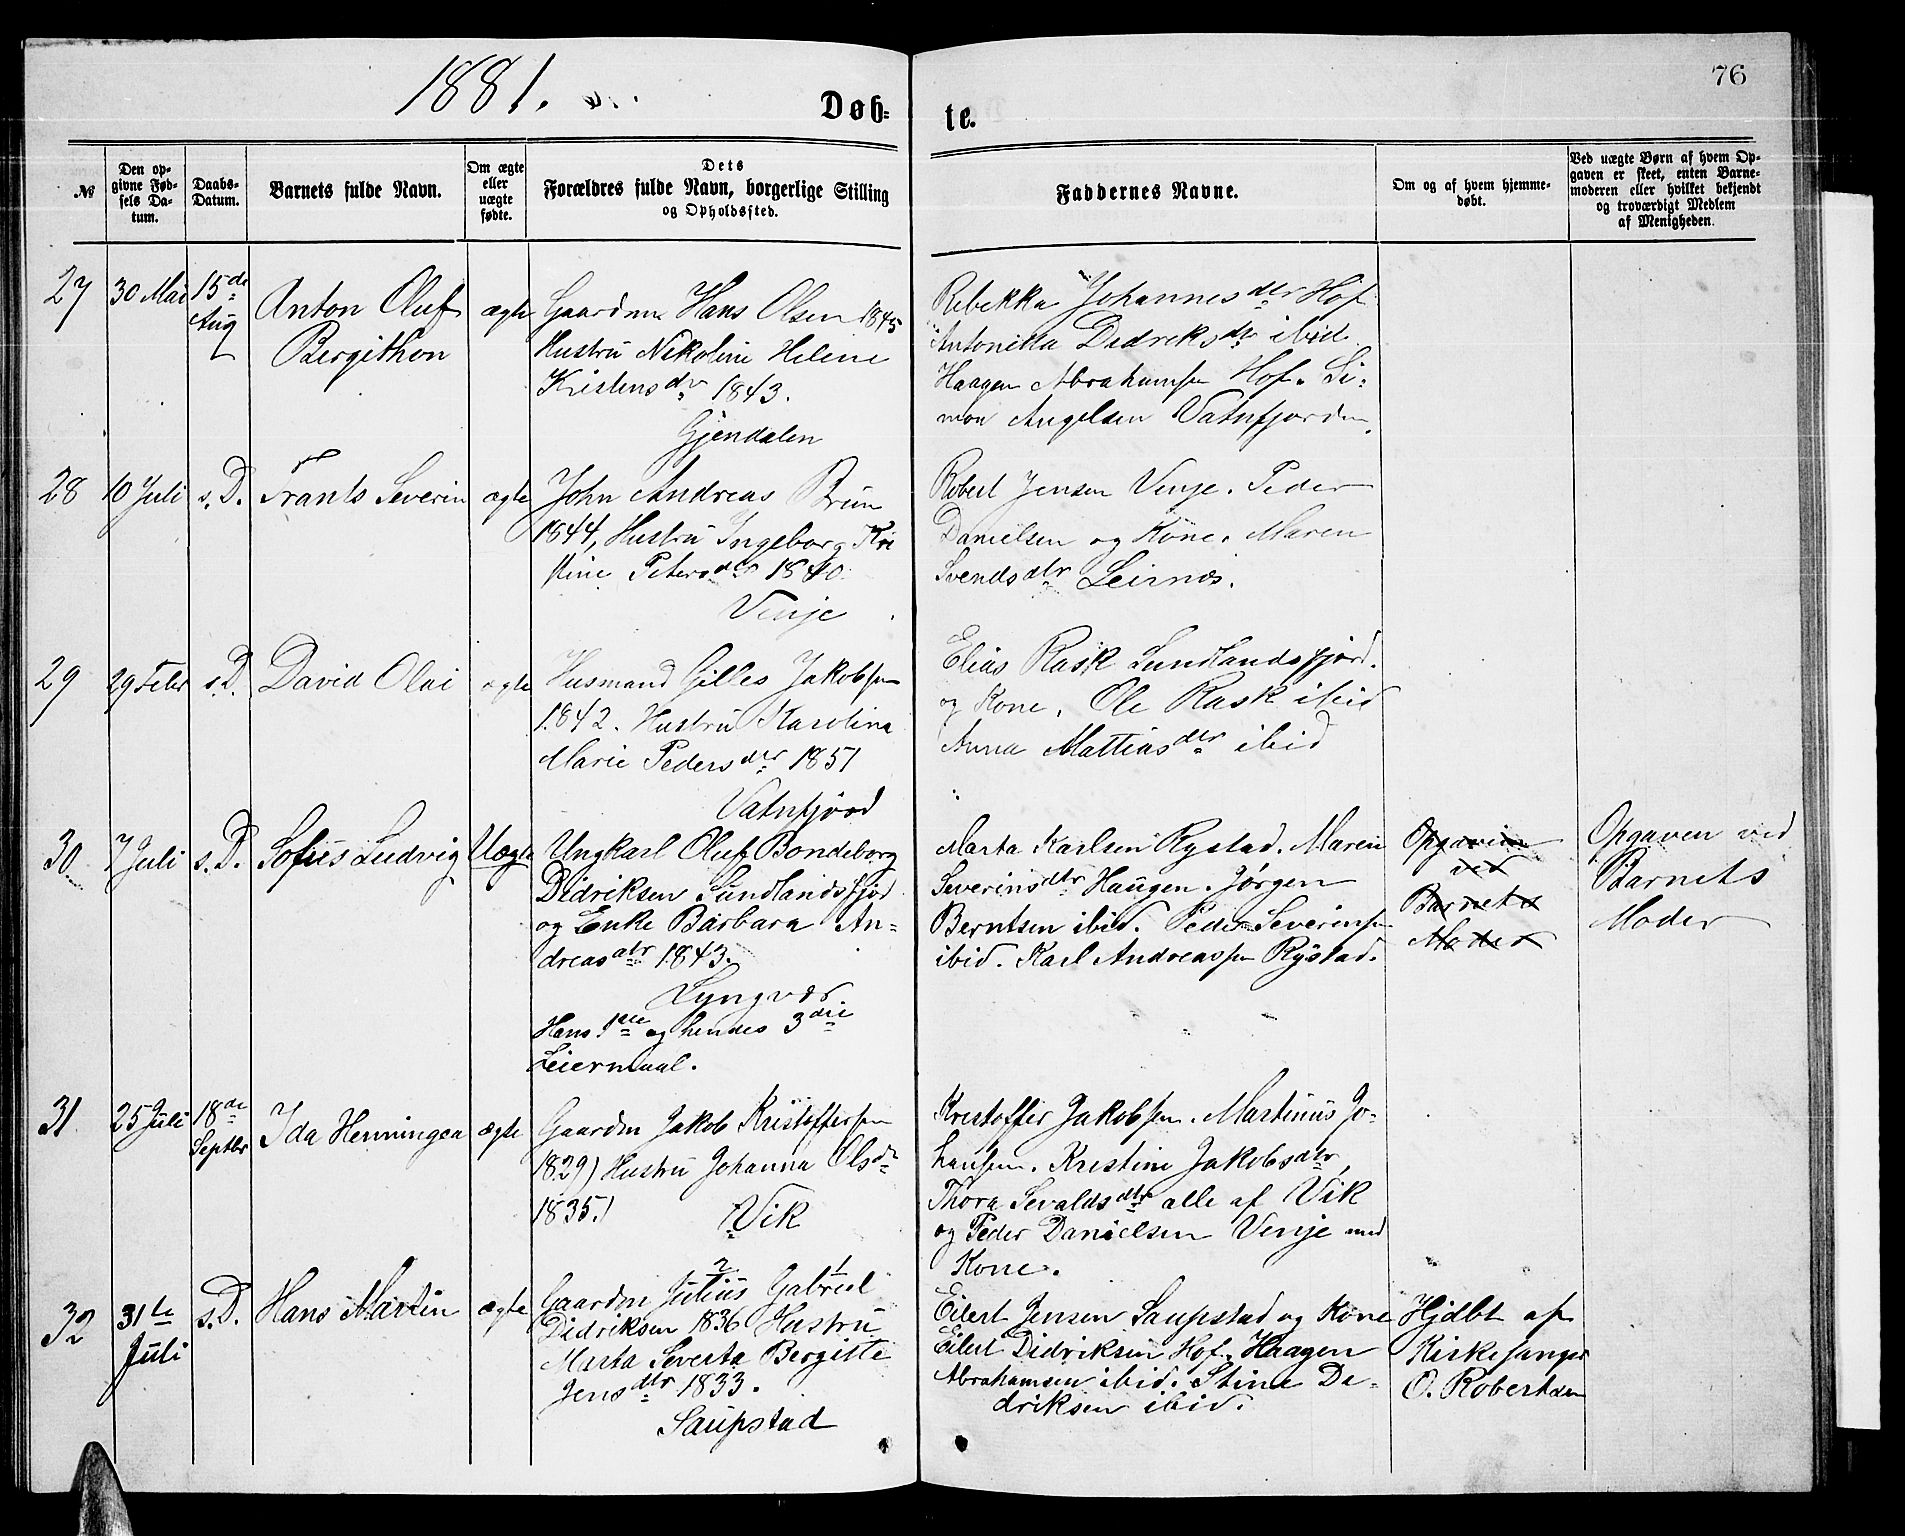 1881.
Døb-
te.
76
№
Den op-
givne Fød-
sels Da-
tum.
Daabs-
Datum.
Barnets fulde Navn.
Om ægte
eller
uægte
fødte.
Dets
Forældres fulde Navn, borgerlige Stilling
og Opholdssted.
Faddernes Navne.
Om og af hvem hjemme-
døbt.
Ved uægte Børn af hvem Op-
gaven er skeet, enten Barne-
moderen eller hvilket bekjendt
og troværdigt Medlem
af Menigheden.
27
30 Mai
15de
Aug
Anton Oluf
Bergithon
ægte
Gaardm Hans Olsen 1845
Hustru Nikoline Helene
Kristensdr 1843.
Gjendalen
Rebekka Johannesdtr Hof
Antonitta Didreksdtr ibid
Haagen Abrahamsen Hof. Si-
mon Angelsen Vatnfjorden.
28
10 Juli
s.D.
Frants Severin
ægte
John Andreas Brun
1844, Hustru Ingeborg Kri
stine Petersdtr 1840.
Venje
Robert Jensen Venje. Peder
Danielsen og Kone. Maren
Svendsdtr Leirnes.
29
29 Febr
s.D.
David Olai
ægte
Husmand Gilles Jakobsen
1842. Hustru Karolina
Marie Pedersdtr 1851
Vatnfjord
Elias Rask Sundlandsfjord.
og Kone. Ole Rask ibid
Anna Mattiasdtr ibid
30
7 Juli
s.D.
Sofus Ludvig
Uægte
Ungkarl Oluf Bondeborg
Didriksen Sundlandsfjord
og Enke Barbara An-
dreasdtr 1843.
Lyngvær.
Hans 1ste og hendes 3die
Leiermaal.
Marta Karlsen Rystad. Maren
Severinsdtr Haugen. Jørgen
Berntsen ibid. Peder Severinsen
ibid. Karl Andreassen Rystad.
Opgaven
ved
Barnets
Moder
Opgaven ved
Barnets
Moder
31
25 Juli
18de
Septbr
Ida Henningea
ægte
Gaardm Jakob Kristoffersen
1829) Hustru Johanna Olsdtr
1835.)
Vik
Kristoffer Jakobsen. Martinus Jo-
hansen. Kristine Jakobsdtr,
Thora Sevaldsdtr alle af Vik
og Peder Danielsen Venje med
Kone.
32
31te
Juli
s.D.
Hans Martin
ægte
2 1
Gaardm Julius Gabriel
Didriksen 1836 Hustru
Marta Severta Bergitte
Jensdtr 1833.
Saupstad
Eilert Jensen Saupstad og Kone
Eilert Didriksen Hof. Haagen
Abrahamsen ibid. Stina De-
driksen ibid.
Hjdbt af
Kirkesanger
O. Robertsen